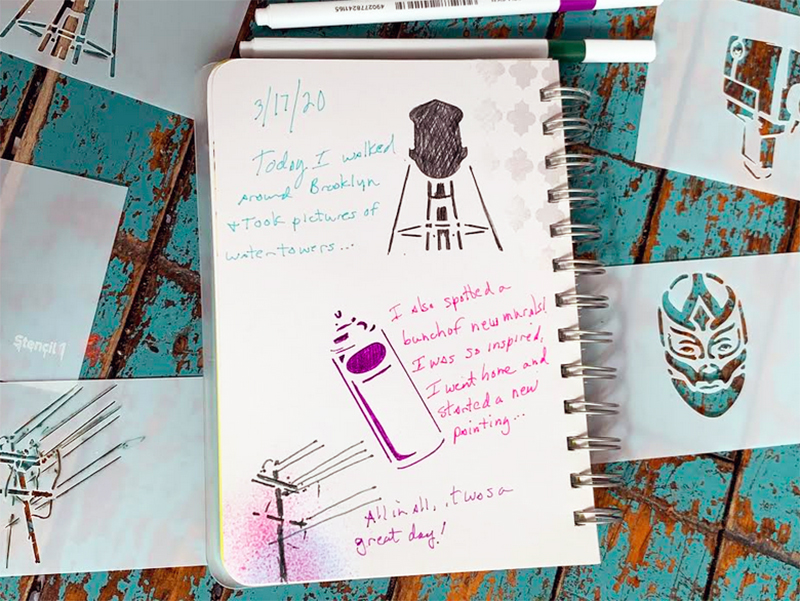 4902778241165
3/17/20
Today I walked
around Brooklyn
+ Took pictures of
water towers...
I also spotted a
bunch of new murals!
I was so inspired,
I went home and
started a new
painting...
Stencil 1
All in all, it was a
great day!